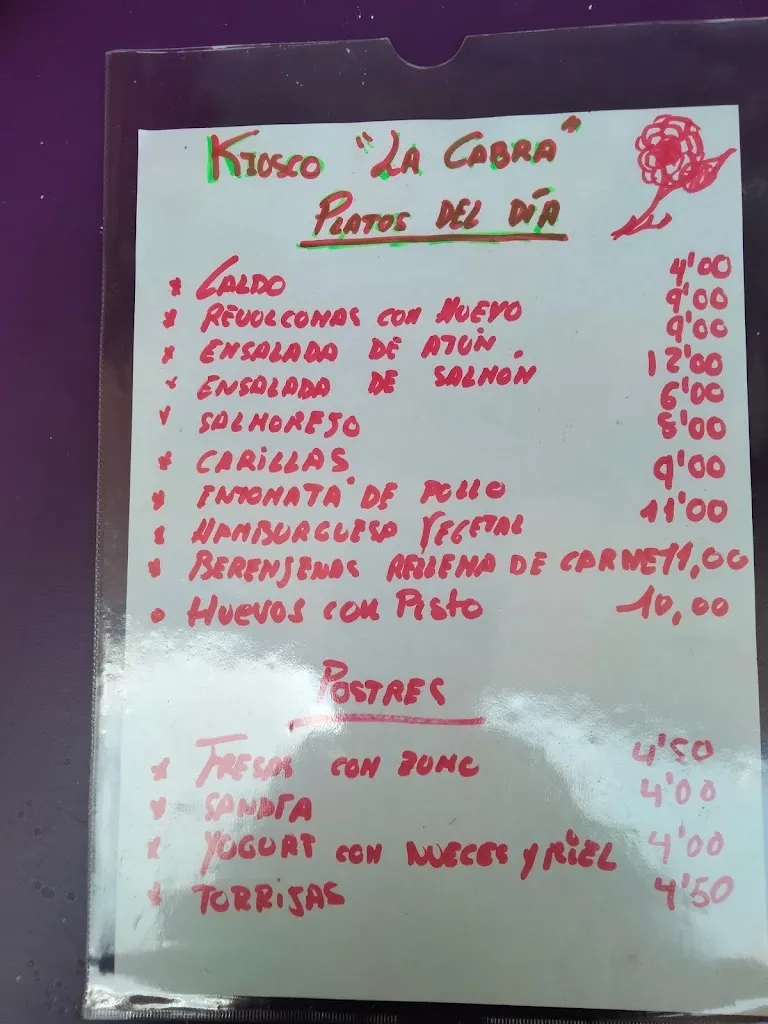 KIOSCO "LA CABRA"
PLATOS DEL DÍA
* CALDO 4'00
* REVOLCONAS CON HUEVO 9'00
* ENSALADA DE ATÚN 9'00
* ENSALADA DE SALMÓN 12'00
* SALMOREJO 6'00
* CARILLAS 8'00
* ENTOMATA' DE POLLO 9'00
* HAMBURGUESA VEGETAL 11'00
* BERENJENAS RELLENA DE CARNE 11,00
• HUEVOS CON PISTO 10,00
POSTRES
* FRESAS CON ZUMO 4'50
* SANDÍA 4'00
* YOGURT CON NUECES Y MIEL 4'00
* TORRIJAS 4'50